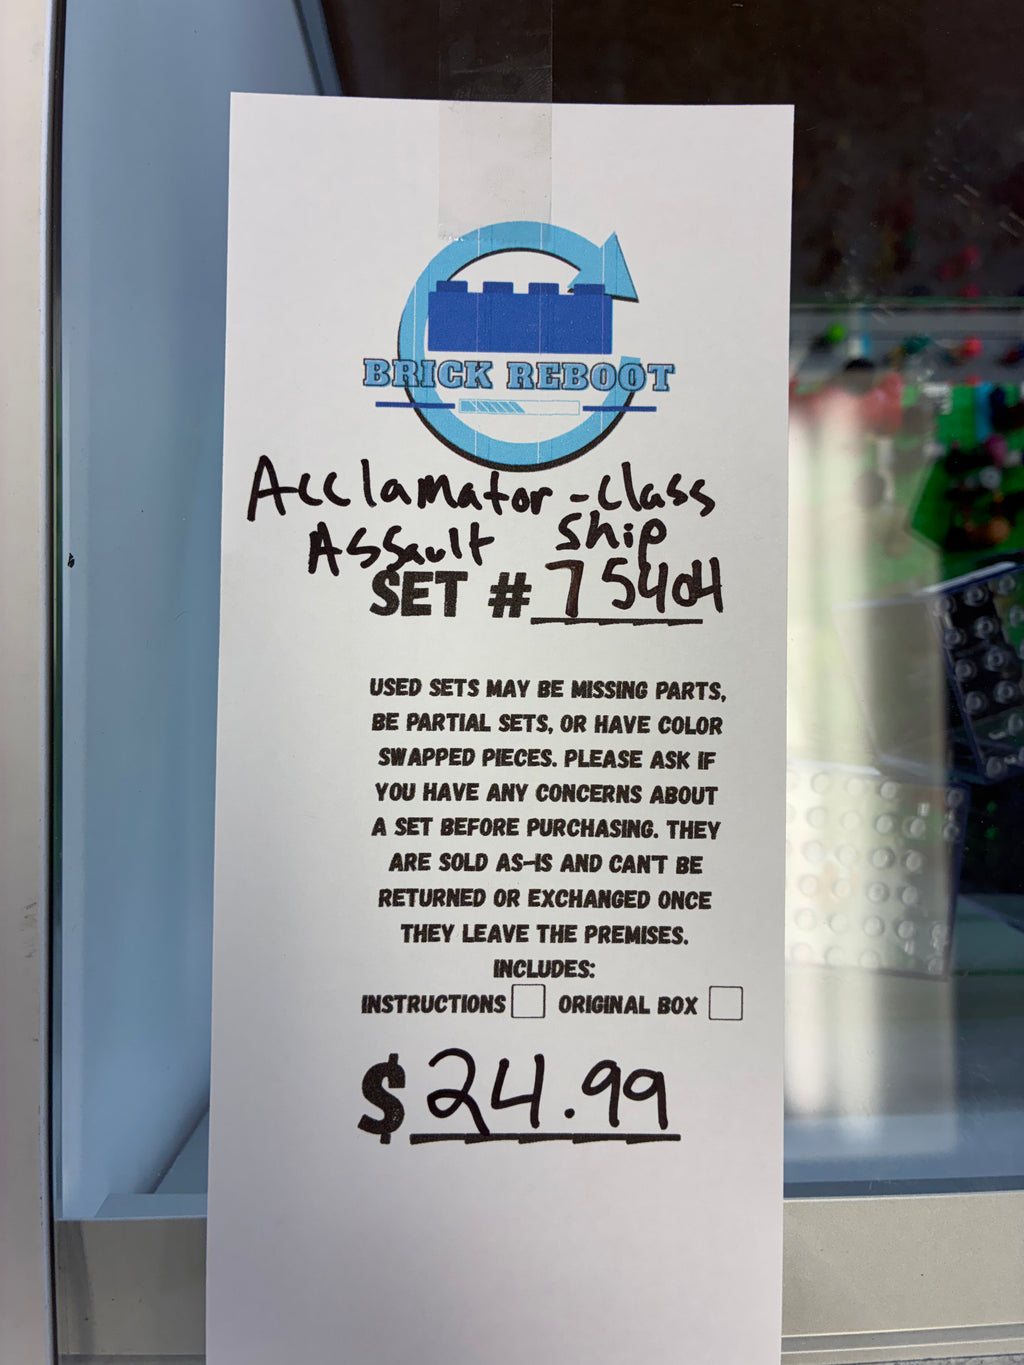 BRICK REBOOT
Acclamator-class
Assault ship
SET # 75404
USED SETS MAY BE MISSING PARTS,
BE PARTIAL SETS, OR HAVE COLOR
SWAPPED PIECES. PLEASE ASK IF
YOU HAVE ANY CONCERNS ABOUT
A SET BEFORE PURCHASING. THEY
ARE SOLD AS-IS AND CAN'T BE
RETURNED OR EXCHANGED ONCE
THEY LEAVE THE PREMISES.
INCLUDES:
INSTRUCTIONS ORIGINAL BOX
$24.99